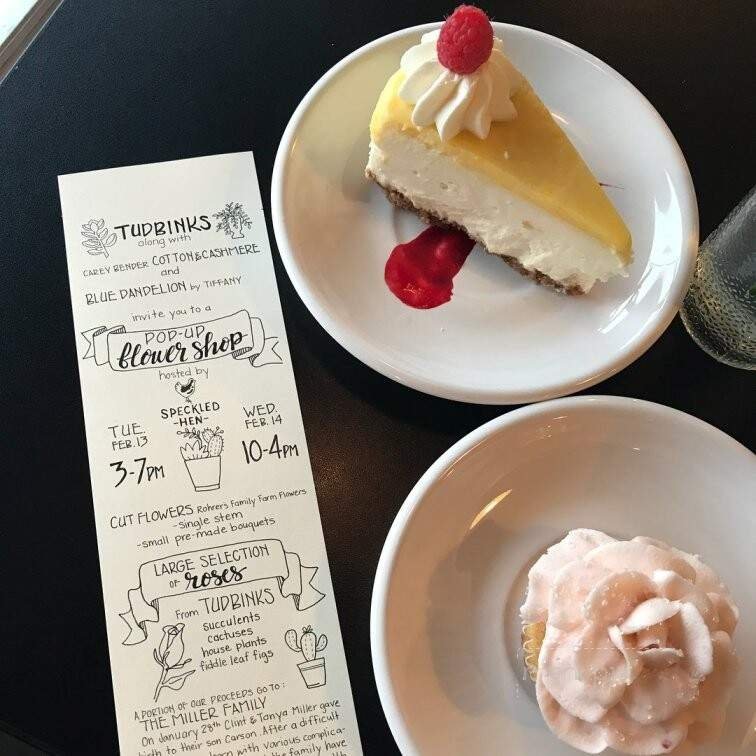 TUDBINKS
along with
CAREY BENDER COTTON & CASHMERE
and
BLUE DANDELION by TIFFANY
invite you to a
POP-UP
flower shop
hosted by
SPECKLED
-HEN-
TUE.
FEB. 13
3-7PM
WED.
FEB. 14
10-4PM
CUT FLOWERS Rohrers Family Farm Flowers
-single stem
-small pre-made bouquets
LARGE SELECTION
OF roses
From TUDBINKS
succulents
cactuses
house plants
fiddle leaf figs
A PORTION OF OUR PROCEEDS GO TO:
THE MILLER FAMILY
On January 28th Clint & Tanya Miller gave
birth to their son Carson. After a difficult
born with various complica-
the family have